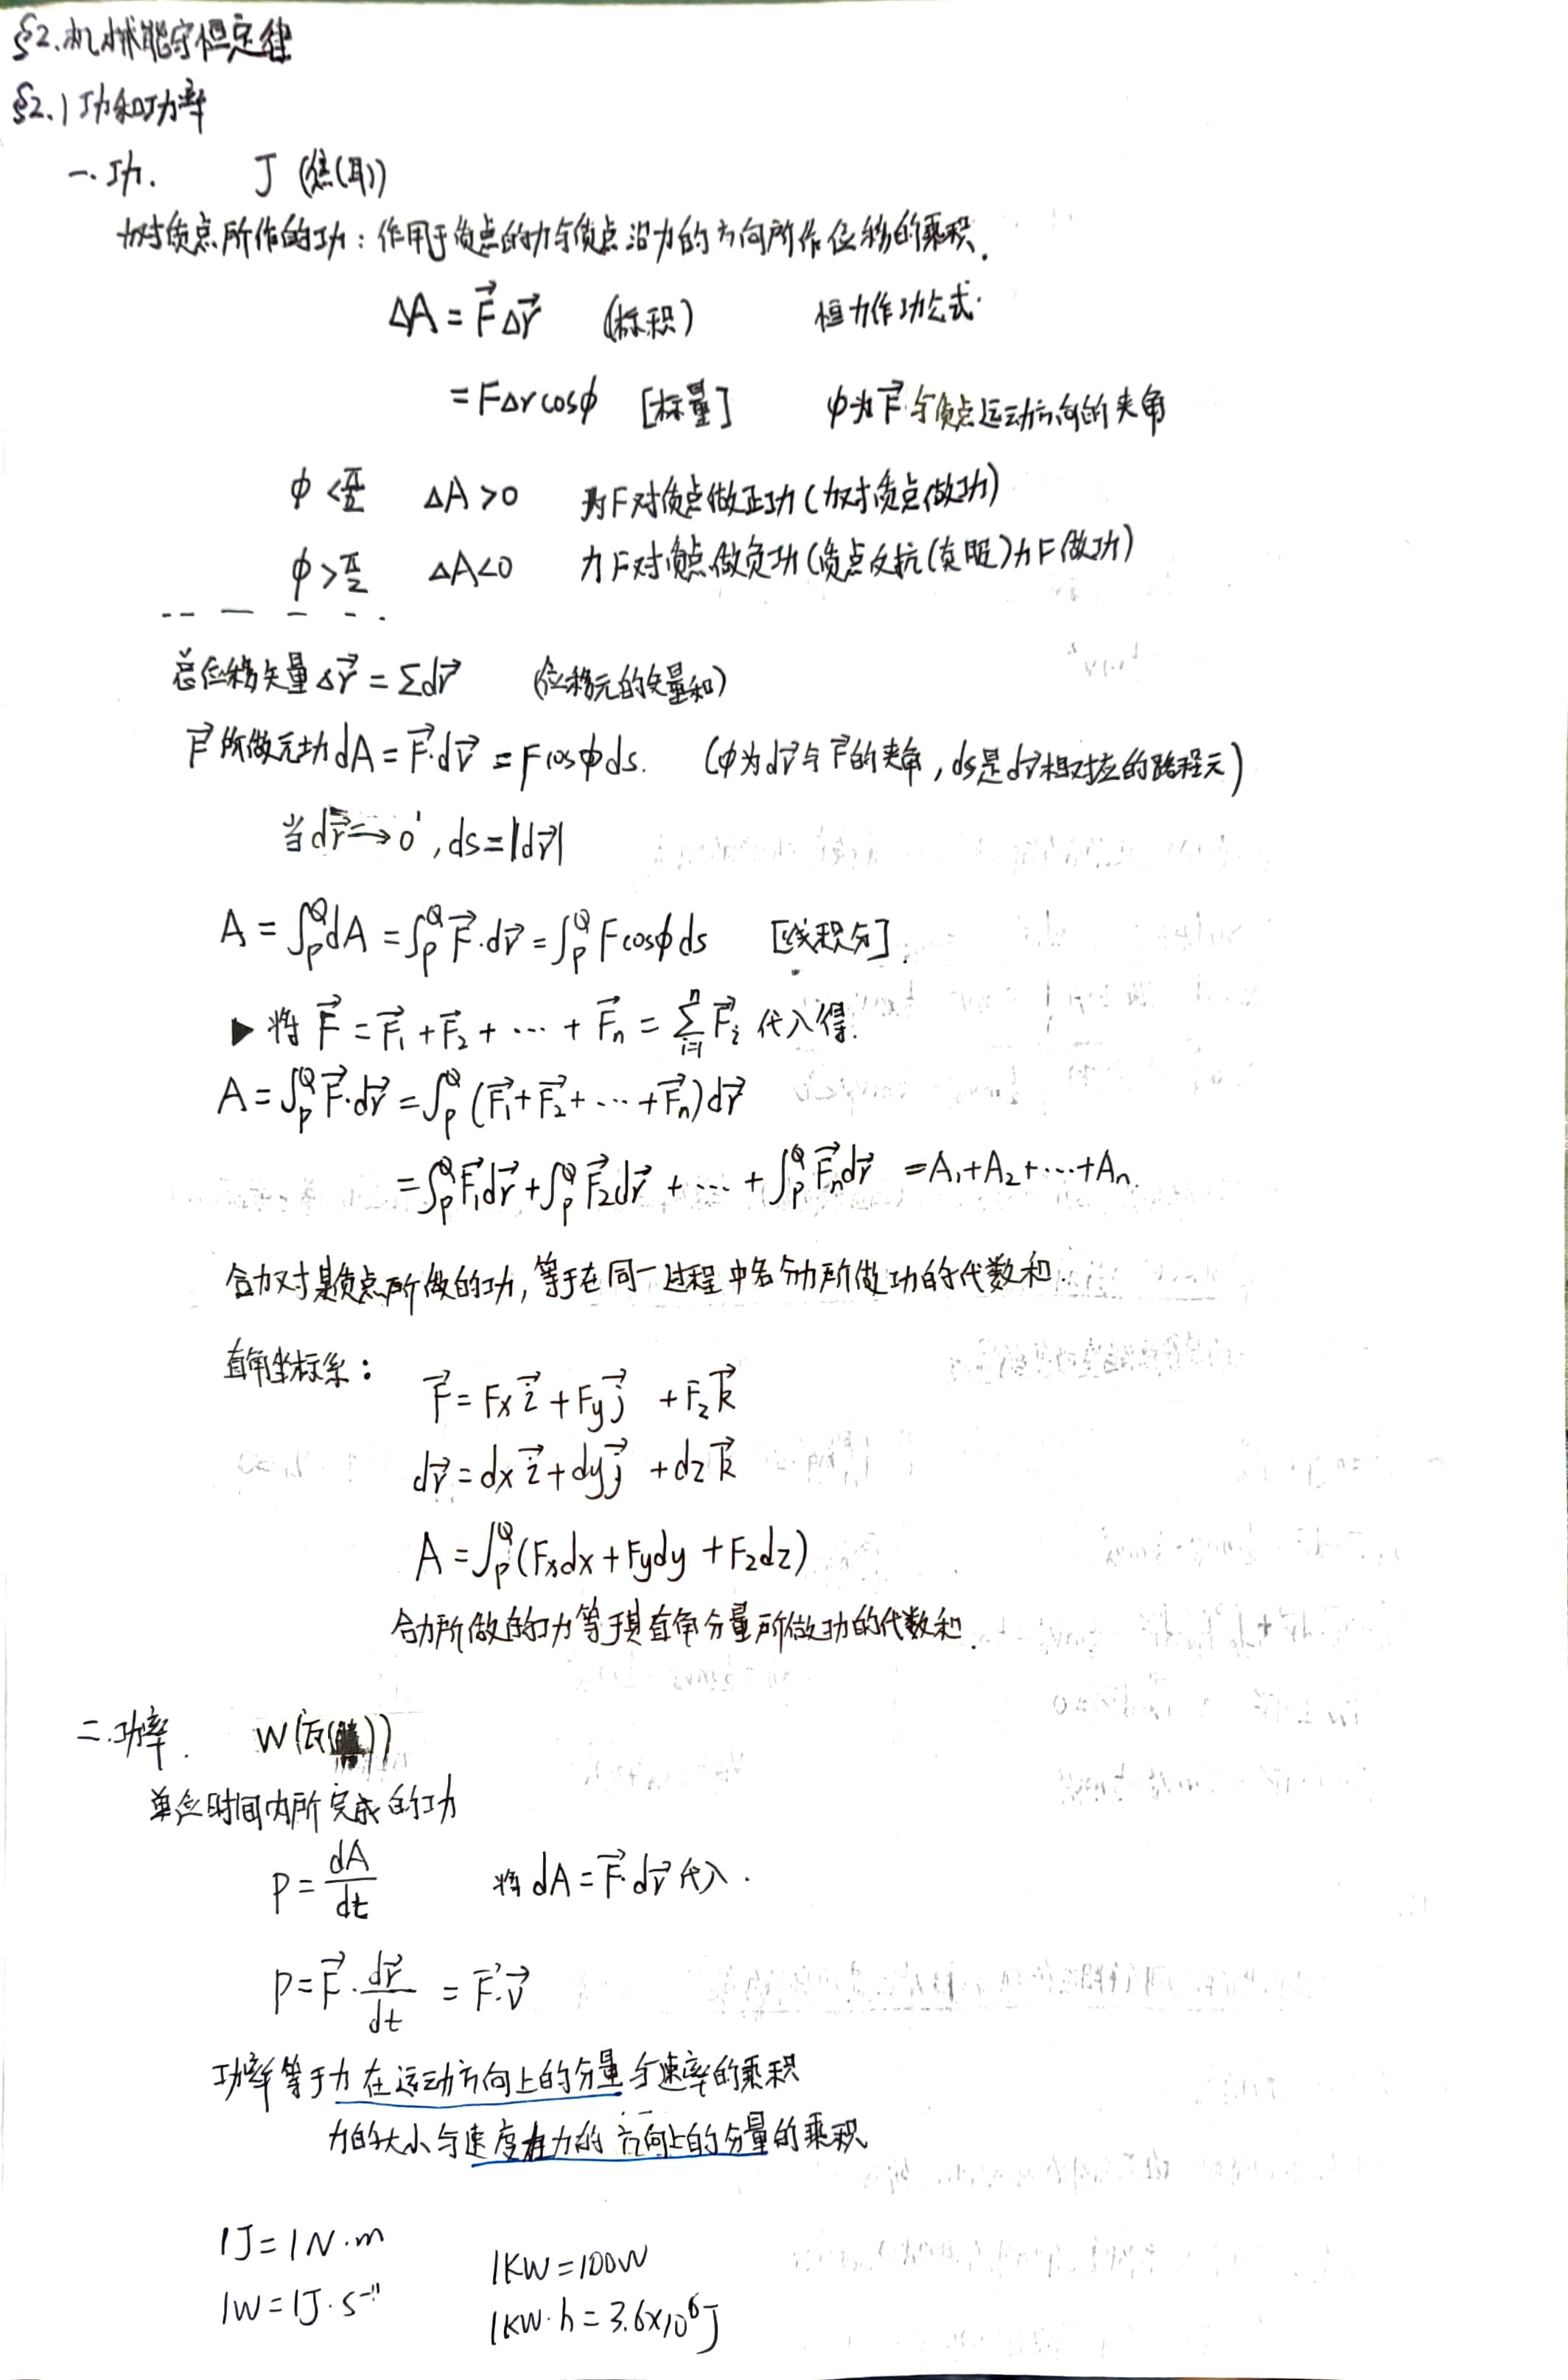 §2.机械能守恒定律
§2.1功和功率
一.功. J (焦(耳))
力对质点所作的功:作用于质点的力与质点沿力的方向所作位移的乘积.
ΔA = F⃗Δr⃗ (标积) 恒力作功公式.
= FΔr cosϕ [标量] ϕ为F⃗与质点运动方向的夹角
ϕ < π/2 ΔA>0 力F对质点做正功(力对质点做功)
ϕ > π/2 ΔA<0 力F对质点做负功(质点反抗(克服)力F做功)
总位移矢量Δr⃗ = Σdr⃗ (位移元的矢量和)
F⃗所做元功dA = F⃗·dr⃗ = F cosϕ ds. (ϕ为dr⃗与F⃗的夹角,ds是dr⃗相对应的路程元)
当dr⃗→0,ds=|dr⃗|
A = ∫_P^Q dA = ∫_P^Q F⃗·dr⃗ = ∫_P^Q F cosϕ ds [线积分].
▶ 将 F⃗ = F⃗₁ + F⃗₂ + ··· + F⃗ₙ = Σ_{i=1}^n F⃗ᵢ 代入得.
A = ∫_P^Q F⃗·dr⃗ = ∫_P^Q (F⃗₁+F⃗₂+···+F⃗ₙ)dr⃗
= ∫_P^Q F⃗₁dr⃗ + ∫_P^Q F⃗₂dr⃗ + ··· + ∫_P^Q F⃗ₙdr⃗ = A₁+A₂+···+Aₙ.
合力对质点所做的功,等于在同一过程中各分力所做功的代数和.
直角坐标系:
F⃗ = Fx i⃗ + Fy j⃗ + Fz k⃗
dr⃗ = dx i⃗ + dy j⃗ + dz k⃗
A = ∫_P^Q (Fxdx + Fydy + Fzdz)
合力所做的功等于其直角分量所做功的代数和.
二.功率. W(瓦())
单位时间内所完成的功
P = dA/dt 将dA = F⃗·dr⃗代入.
P = F⃗·dr⃗/dt = F⃗·v⃗
功率等于力在运动方向上的分量与速率的乘积
力的大小与速度在力的方向上的分量的乘积
1J=1N·m
1KW=100W
1W=1J·s⁻¹
1KW·h=3.6×10⁶J